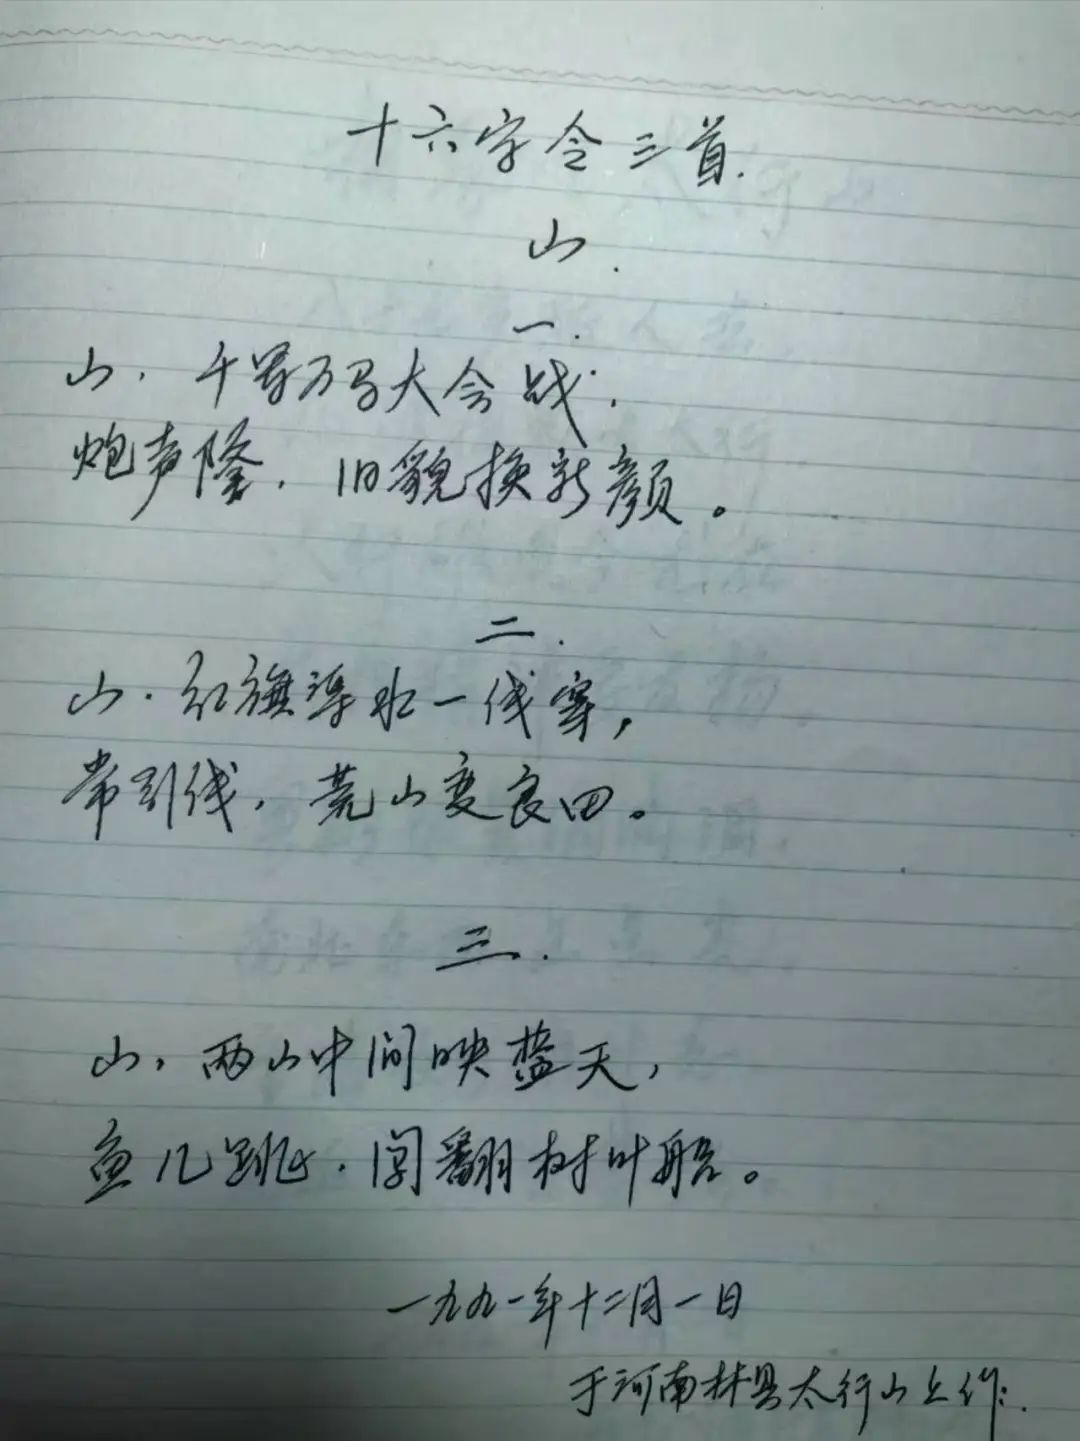 十六字令三首.
山.
一.
山.千军万马大会战.
炮声隆.旧貌换新颜。
二.
山.红旗渠水一线穿,
带引线.荒山变良田。
三.
山,两山中间映蓝天,
鱼儿跳.闯翻树叶船。
一九九一年十二月一日
于河南林县太行山上作.